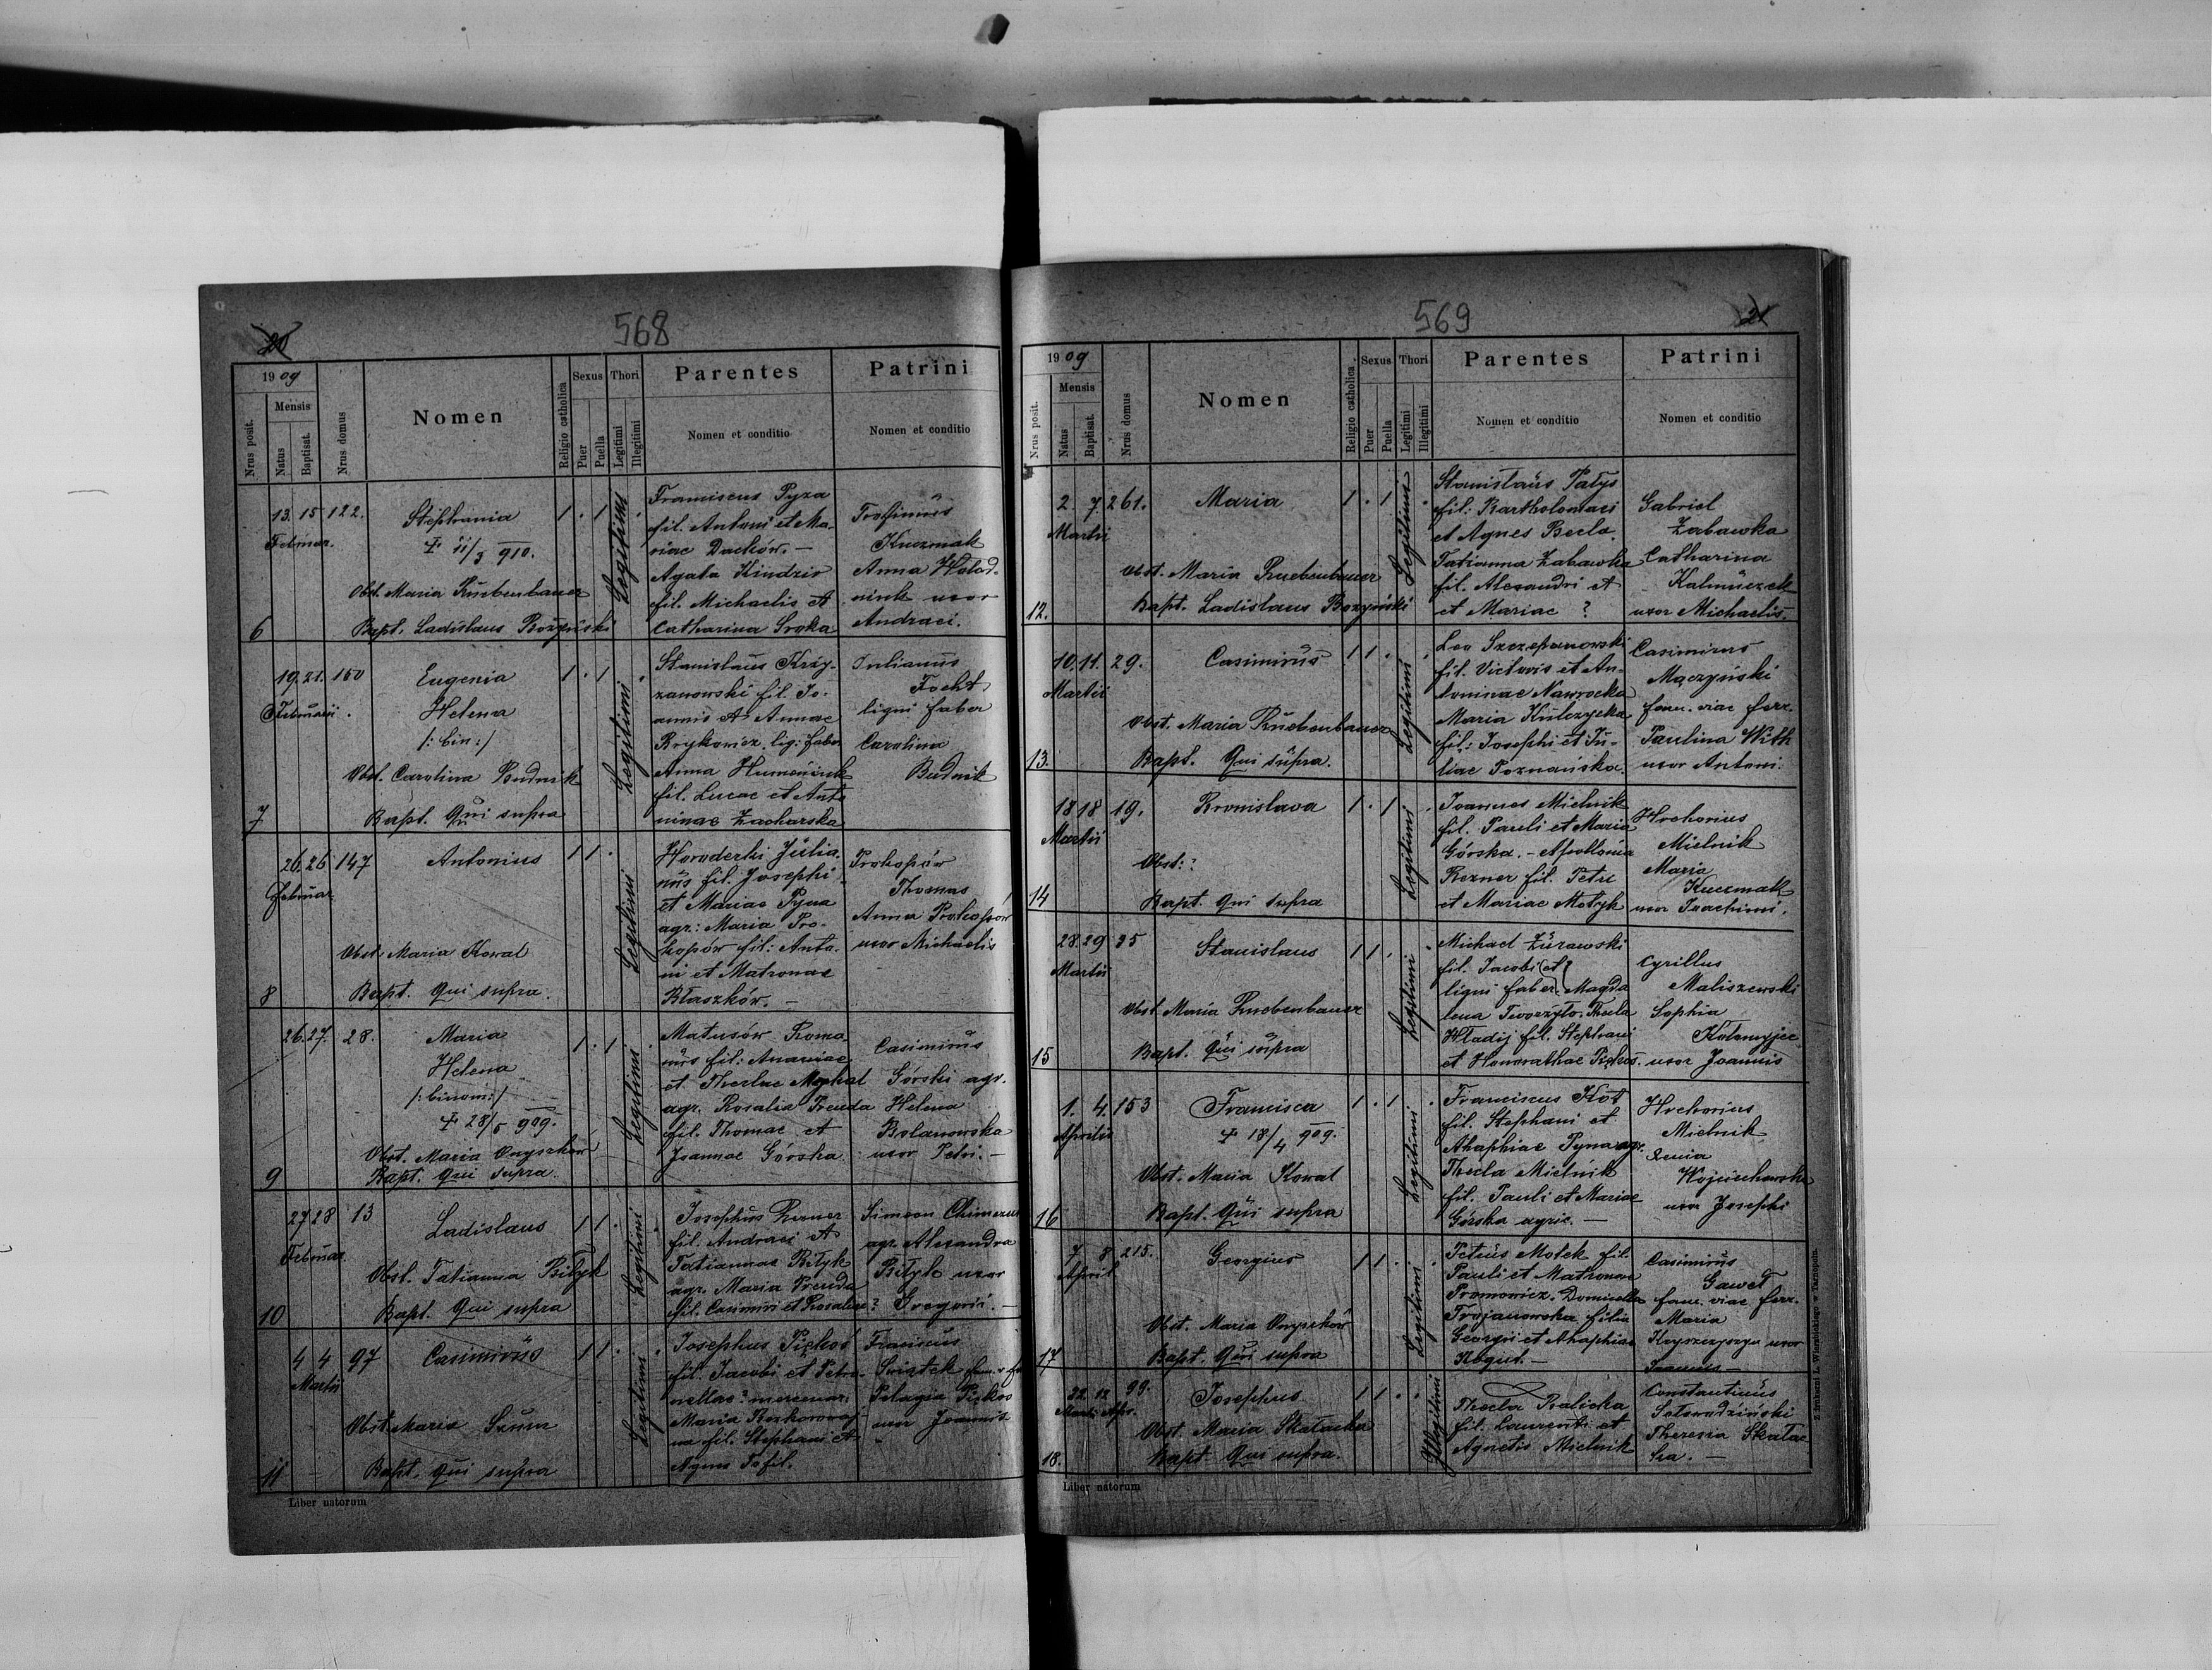 20
568
1909
Nrus posit.
Mensis
Natus
Baptisat.
Nrus domus
Nomen
Religio catholica
Sexus
Puer
Puella
Thori
Legitimi
Illegitimi
Parentes
Nomen et conditio
Patrini
Nomen et conditio
6
13. 15. 122.
Februar.
Stephania
‡ 11/3 910.
Obst. Maria Ruebenbauer
Bapt. Ladislaus Bożyński
1 . 1
Legitimi
Franciscus Pyza
fil. Antoni et Ma-
riae Dachów. —
Agata Kindzio
fil. Michaelis et
Catharina Sroka
Trofimus
Kuczmak
Anna Hołod-
niuk uxor
Andraei.
7
19. 21. 150
Februarii.
Eugenia
Helena
/: bin :/
Obst. Carolina Budnik
Bapt. Qui supra
1 . 1
Legitimi
Stanislaus Krzy-
zanowski fil. Jo-
annis et Annae
Brykowicz. lig: faber
Anna Humeniuk
fil. Lucae et Anto
ninae Zacharska
Julianus
Focht
ligni faber
Carolina
Budnik
8
26. 26 147
Februar
Antonius
Obst. Maria Kowal
Bapt. Qui supra.
1 1 .
Legitimi
Horoderki Julia-
nus fil. Josephi
et Mariae Pyna
agr: Maria Pro-
kopów fil: Anto-
ni et Matronae
Błaszków. —
Prokopów
Thomas
Anna Prokopów
uxor Michaelis
9
26. 27. 28.
Maria
Helena
/: binom :/
‡ 28/5 909.
Obst. Maria Onyszków
Bapt. Qui supra.
1 . 1 .
Legitimi
Matusów Roma-
nus fil: Ananiae
et Theclae Michal
agr. Rosalia Preuda
fil. Thomae et
Joannae Górska
Casimirus
Górski agr.
Helena
Bolanowska
uxor Petri. —
10
27 28 13
Februar
Ladislaus
Obst. Tatianna Biłyk
Bapt. Qui supra
1 1 .
Legitimi
Josephus Rezner
fil. Andraei et
Tatiannae Biłyk
agr. Maria Preuda
fil. Casimiri et Rosaliae ?
Simeon Chimezuk
agr. Alexandra
Biłyk uxor
Gregorii. —
11
4 4 97
Martii
Casimirus
Obst. Maria Szum
Bapt. Qui supra
1 1 .
Legitimi
Josephus Pickos
fil. Jacobi et Petro-
nellae ? mercenar.
Maria
na fil. Stephani et
Agnes
Franicus
Świstek
Pelagia Pickos
uxor Joannis
Liber natorum
569
21
1909
Nrus posit.
Mensis
Natus
Baptisat.
Nrus domus
Nomen
Religio catholica
Sexus
Puer
Puella
Thori
Legitimi
Illegitimi
Parentes
Nomen et conditio
Patrini
Nomen et conditio
12.
2. 7. 261.
Martii
Maria
Obst. Maria Ruebenbauer
Bapt. Ladislaus Bozyński
1 . 1
Legitimi
Stanislaus Patys
fil: Bartholomaei
et Agnes Becla.
Tatianna Zabawka
fil. Alexandri et
et Mariae ?
Gabriel
Zabawka
Catharina
Kalmuczek
uxor Michaelis.
13.
10. 11. 29.
Martii
Casimirus
Obst. Maria Ruebenbauer
Bapt. Qui supra.
1 1 .
Legitimi
Leo Szczepanowski
fil. Victoris et An-
toninae Nawrocka
Maria Kulczycka
fil: Josephi et Ju-
liae Poznańska.
Casimirus
Mączyński
fam. viae ferr.
Paulina With
uxor Antoni.
14
18 18 19.
Martii
Bronislava
Obst: ?
Bapt. Qui supra
1 . 1 .
Legitimi
Joannes Mielnik
fil. Pauli et Maria
Górska. — Apollonia
Rezner fil. Petri
et Mariae Motyk
Hrehorius
Mielnik
Maria
Kuczmak
uxor Joachimi.
15
28. 29 35
Martii
Stanislaus
Obst. Maria Ruebenbauer
Bapt. Qui supra
1 1 .
Legitimi
Michael Żurawski
fil. Jacobi et
ligni faber. Magda
lena Tworzyło. Thecla
Hładij fil. Stephani
et Honorathae Pickos.
Cyrillus
Maliszewski
Sophia
Kołomyjec
uxor Joannis
16
1. 4. 153
Aprilis
Francisca
‡ 18/4 909.
Obst. Maria Kowal
Bapt. Qui supra
1 . 1 .
Legitimi
Franciscus Kot
fil. Stephani et
Ahaphiae Pyna agr.
Thecla Mielnik
fil. Pauli et Mariae
Górska agric. —
Hrehorius
Mielnik
Xenia
Wojciechowska
uxor Josephi
17
7 8 215.
April
Georgius
Obst. Maria Onyszków
Bapt. Qui supra
1 1 . .
Legitimi
Petrus Motek fil.
Pauli et Matronae
Promowicz. Domicella
Trojanowska filia
Georgii et Ahaphiae
Kogut. —
Casimirus
Gaweł
fam. viae ferr.
Maria
uxor
Joannis —
18.
22. 12 99.
Martii Apr.
Josephus
Obst. Maria Skałacka
Bapt. Qui supra.
1 1 . .
Illegitimi
Thecla Pralicka
fil. Laurenti et
Agnetis Mielnik
Constantinus
Sołowodziński
Theresia Skałac
ka. —
Liber natorum
Z drukarni L. Wierzbickiego w Tarnopolu.